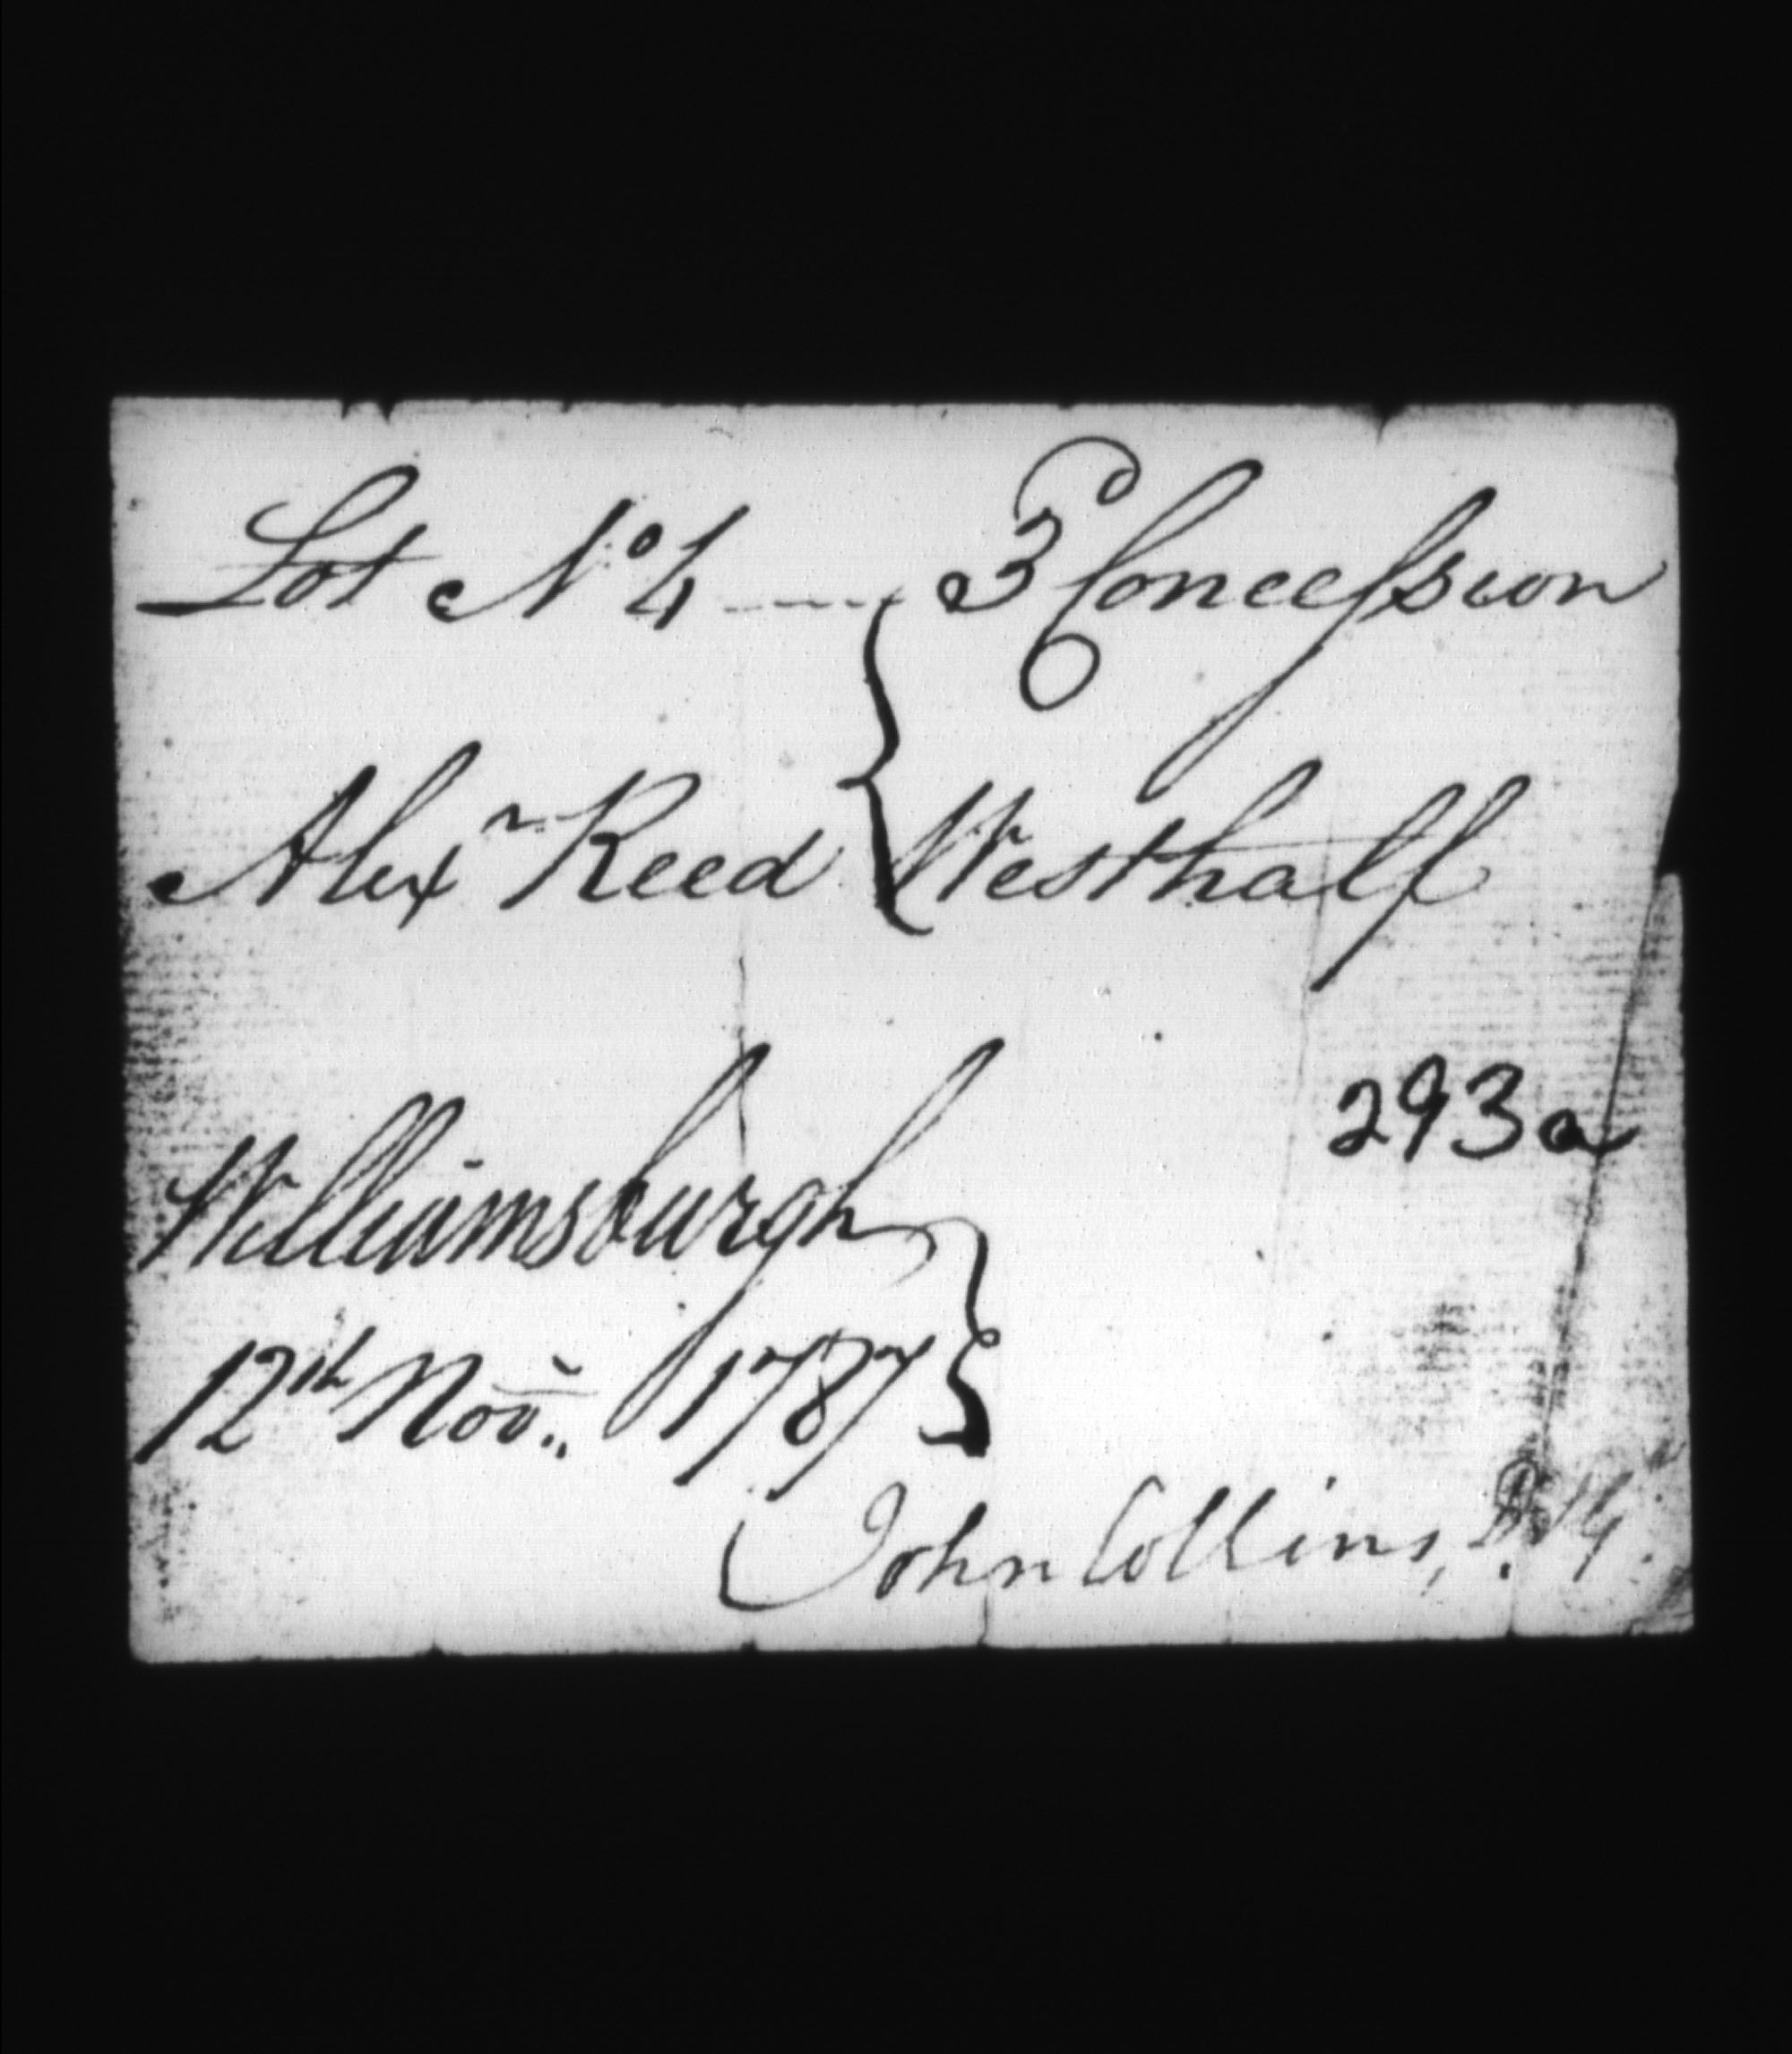 Lot No 4 ---- 3d Concession
Alexr Reed Westhalf
293a
Williamsburgh
12th Novr. 1787
John Collins,